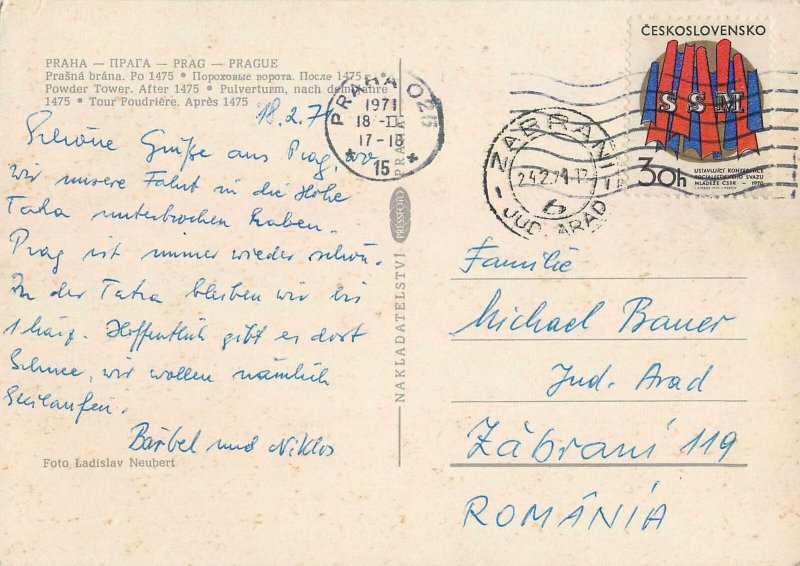 PRAHA — ПРАГА — PRAG — PRAGUE
Prašná brána. Po 1475 • Пороховые ворота. После 1475
Powder Tower. After 1475 • Pulverturm, nach dem Jahre
1475 • Tour Poudrière. Après 1475
18.2.71
Schöne Grüße aus Prag, wo
wir unsere Fahrt in die Hohe
Tatra unterbrochen haben.
Prag ist immer wieder schön.
In der Tatra bleiben wir bis
1. März. Hoffentlich gibt es dort
Schnee, wir wollen nämlich
Skilaufen.
Bärbel und Niklos
Foto Ladislav Neubert
NAKLADATELSTVÍ PRESSFOTO PRAHA
PRAHA 025
1971
18-II
17-18
* 15 *
ZABRANI
24.2.71-12
b
JUD. ARAD
ČESKOSLOVENSKO
SSM
30h
USTAVUJÍCÍ KONFERENCE
SOCIALISTICKÉHO SVAZU
MLÁDEŽE ČSSR - 1970
Familie
Michael Bauer
Jud. Arad
Zăbrani 119
ROMÁNIA